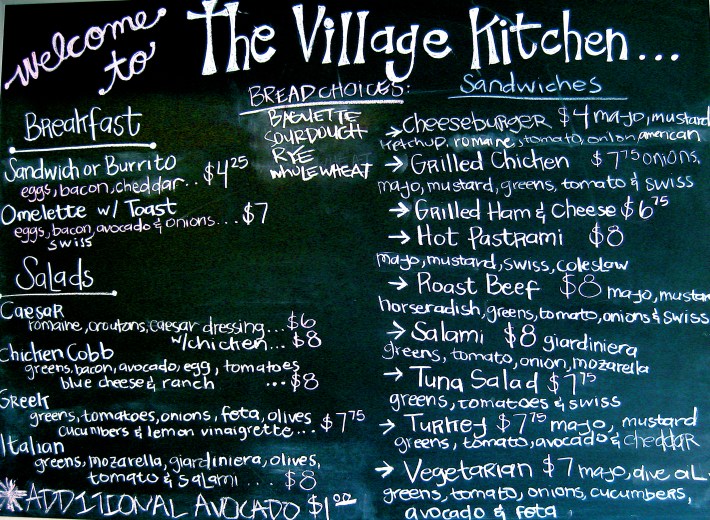 welcome to The Village Kitchen...
BREAD CHOICES:
BAGUETTE
SOURDOUGH
RYE
WHOLE WHEAT
Breakfast
Sandwich or Burrito
eggs, bacon, cheddar.. $4.25
Omelette w/ Toast
eggs, bacon, avocado & onions... $7
swiss
Salads
Caesar
romaine, croutons, caesar dressing... $6
w/chicken... $8
Chicken Cobb
greens, bacon, avocado, egg, tomatoes
blue cheese & ranch ... $8
Greek
greens, tomatoes, onions, feta, olives
cucumbers & lemon vinaigrette... $7.75
Italian
greens, mozarella, giardiniera, olives,
tomato & salami .... $8
*ADDITIONAL AVOCADO $1.00
Sandwiches
→ Cheeseburger $4 mayo, mustard
ketchup, romaine, tomato, onion american
→ Grilled Chicken $7.75 onions,
mayo, mustard, greens, tomato & swiss
→ Grilled Ham & Cheese $6.75
→ Hot Pastrami $8
mayo, mustard, swiss, coleslaw
→ Roast Beef $8 mayo, mustar
horseradish, greens, tomato, onions & swiss
→ Salami $8 giardiniera
greens, tomato, onion, mozarella
→ Tuna Salad $7.75
greens, tomatoes & swiss
→ Turkey $7.75 mayo, mustard
greens, tomato, avocado & cheddar
→ Vegetarian $7 mayo, olive oil
greens, tomato, onions, cucumbers,
avocado & feta